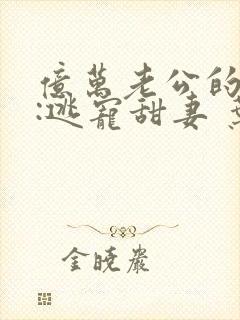 億萬老公的
:逃寵甜妻
金曉巖